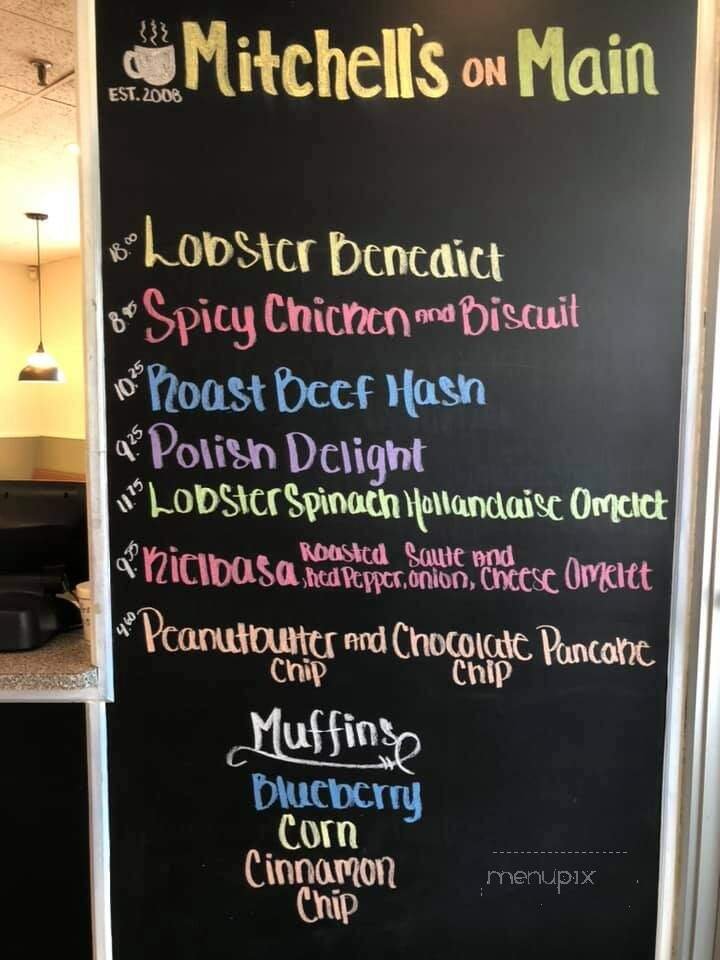 Mitchell's on Main
EST. 2008
18.00 Lobster Benedict
8.95 Spicy Chicken and Biscuit
10.25 Roast Beef Hash
9.25 Polish Delight
11.75 Lobster Spinach Hollandaise Omelet
9.95 Kielbasa, Roasted Red Pepper, Saute onion, and Cheese Omelet
4.60 Peanutbutter Chip and Chocolate Chip Pancake
Muffins
Blueberry
Corn
Cinnamon
Chip
menupix